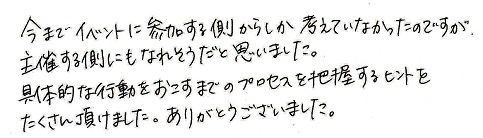 今までイベントに参加する側からしか考えていなかったのですが、
主催する側にもなれそうだと思いました。
具体的な行動をおこすまでのプロセスを把握するヒントを
たくさん頂けました。ありがとうございました。